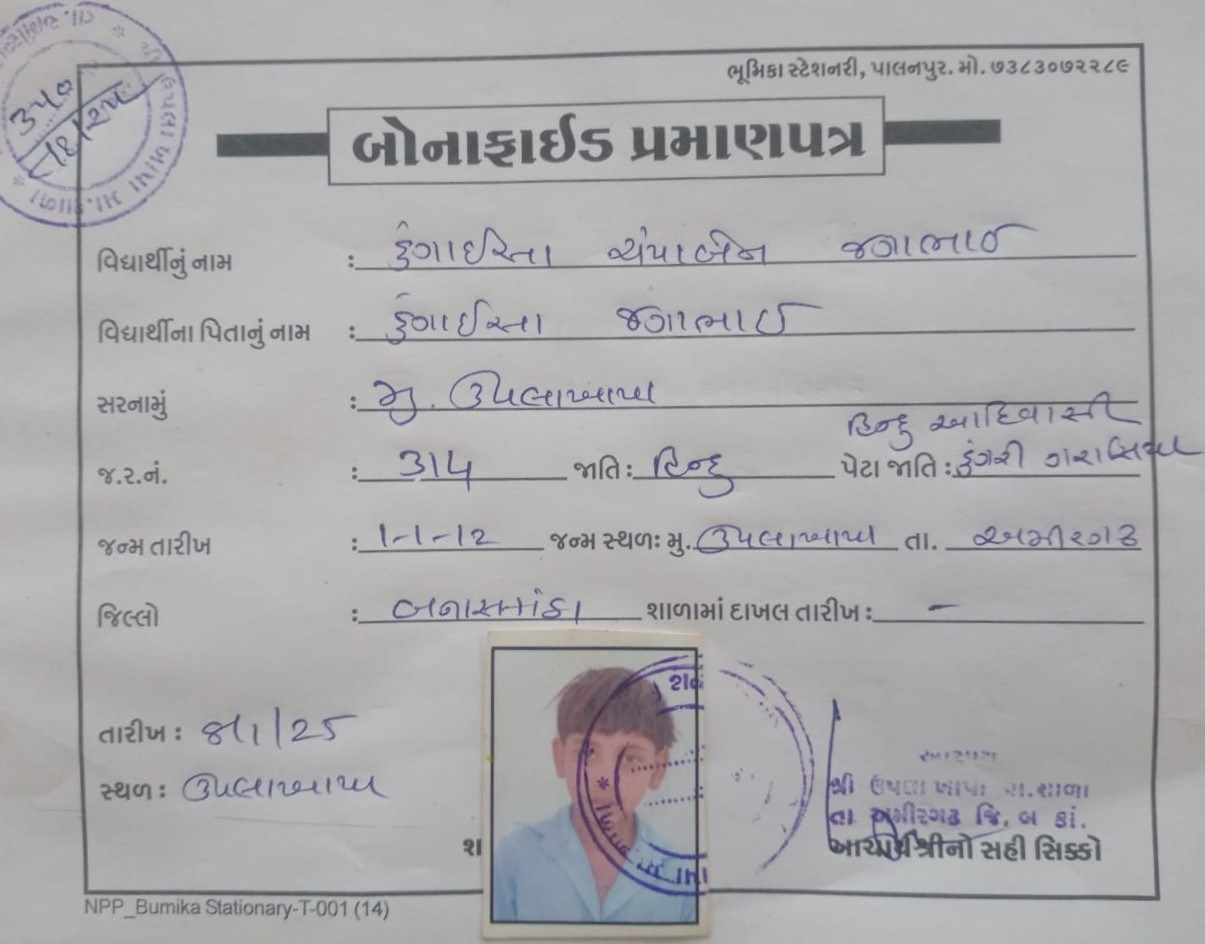 ૩૫૦
ભૂમિકા સ્ટેશનરી, પાલનપુર. મો. ૭૩૮૩૦૭૨૨૮૯
બોનાફાઈડ પ્રમાણપત્ર
વિદ્યાર્થીનું નામ : ડુંગાઈસા ચંપાબેન જગાભાઈ
વિદ્યાર્થીના પિતાનું નામ : ડુંગાઈસા જગાભાઈ
સરનામું : મુ. ઉપલાખાપા
હિન્દુ આદિવાસી
જ.ર.નં. : 314 જાતિ : હિન્દુ પેટા જાતિ : ડુંગરી ગરાસિયા
જન્મ તારીખ : 1-1-12 જન્મ સ્થળઃ મુ. ઉપલાખાપા તા. અમીરગઢ
જિલ્લો : બનાસકાંઠા શાળામાં દાખલ તારીખ : -
તારીખ : 8/1/25
સ્થળ : ઉપલાખાપા
શ્રી ઉપલા ખાપા પ્રા.શાળા
તા. અમીરગઢ જિ. બ કાં.
આચાર્યશ્રીનો સહી સિક્કો
NPP_Bumika Stationary-T-001 (14)